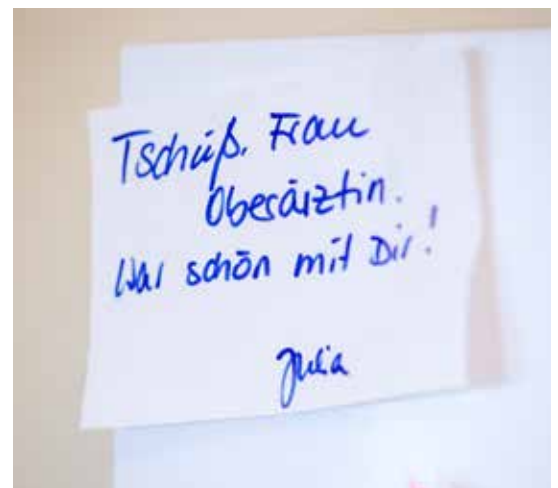 Tschüß, Frau
Oberärztin.
War schön mit Dir!
Julia